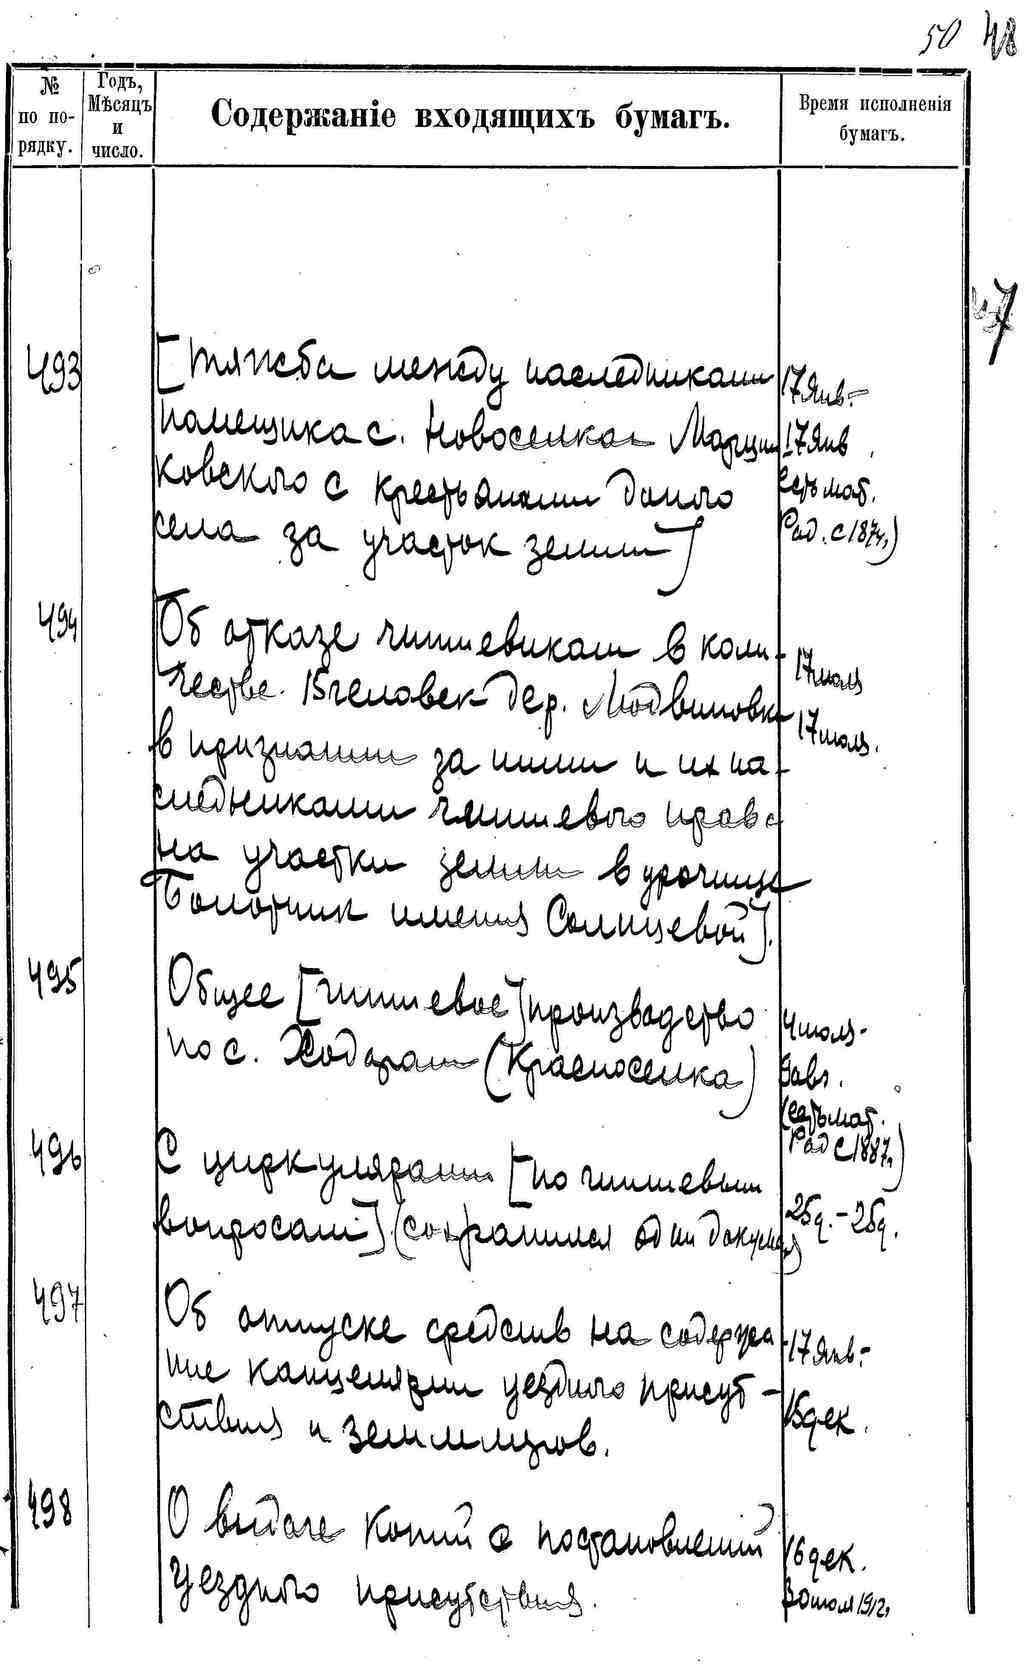 50 48
№ по по-рядку.
Годъ, Мѣсяцъ и число.
Содержаніе входящихъ бумагъ.
Время исполненія бумагъ.
47
493
[Тяжба между наследниками
помещика с. Новоселка Марцин
ковского с крестьянами данного
села за участок земли]
17 янв.-
17 янв.
есть мат.
Рад. с 187
494
[Об отказе чиншевикам в коли-
честве 15 человек дер. Людвиновка
в признании за ними и их на-
следниками чиншевого права
на участки земли в урочище
Болотник имения Солнцевой].
17 июля
17 июля.
495
Общее [чиншевое] производство
по с. Ходорам (Красноселка)
4 июля-
9 авг.
(есть мат.
Рад с 1887)
496
С циркулярами [по чиншевым
вопросам]. (сохранился один докумен)
25 д. - 25 д.
497
Об отпуске средств на содержа
ние канцелярии уездного присут-
ствия и землемеров.
17 янв.-
15 дек.
498
О выдаче копий с постановлений
уездного присутствия.
16 дек.
30 июля 1912